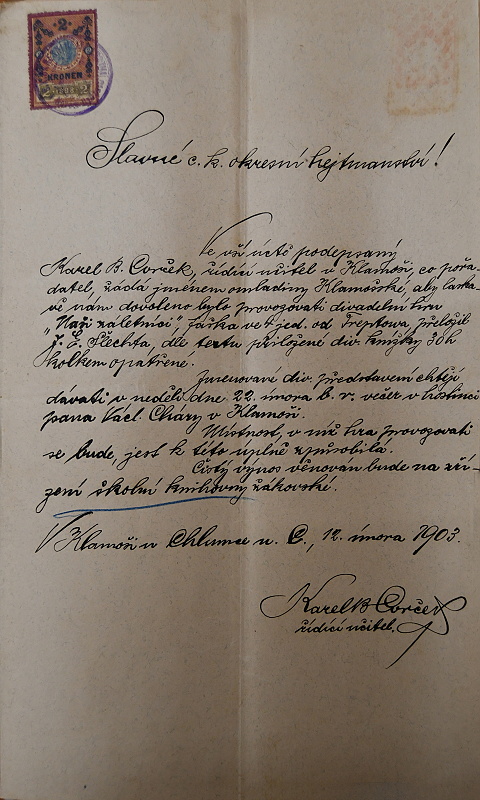 2
KRONEN
2 2
Slavné c. k. okresní hejtmanství!
Ve vší úctě podepsaný
Karel B. Cvrček, řídící učitel v Klamoši, co pořa-
datel, žádá jménem omladiny Klamošské, aby laska-
vě nám dovoleno bylo provozovati divadelní hru
„Naši záletníci", fraška ve 4 jed. od Treptowa, přeložil
J. L. Šlechta, dle textu přiložené div. knížky 30h
kolkem opatřené.
Jmenované div. představení chtějí
dávati v neděli dne 22. února b. r. večer v hostinci
pana Václ. Cháry v Klamoši.
Místnost, v níž hra provozovati
se bude, jest k této úplně způsobilá.
Čistý výnos věnován bude na zří-
zení školní knihovny žákovské.
V Klamoši u Chlumce n. C., 12. února 1903.
Karel B Cvrček
řídící učitel.